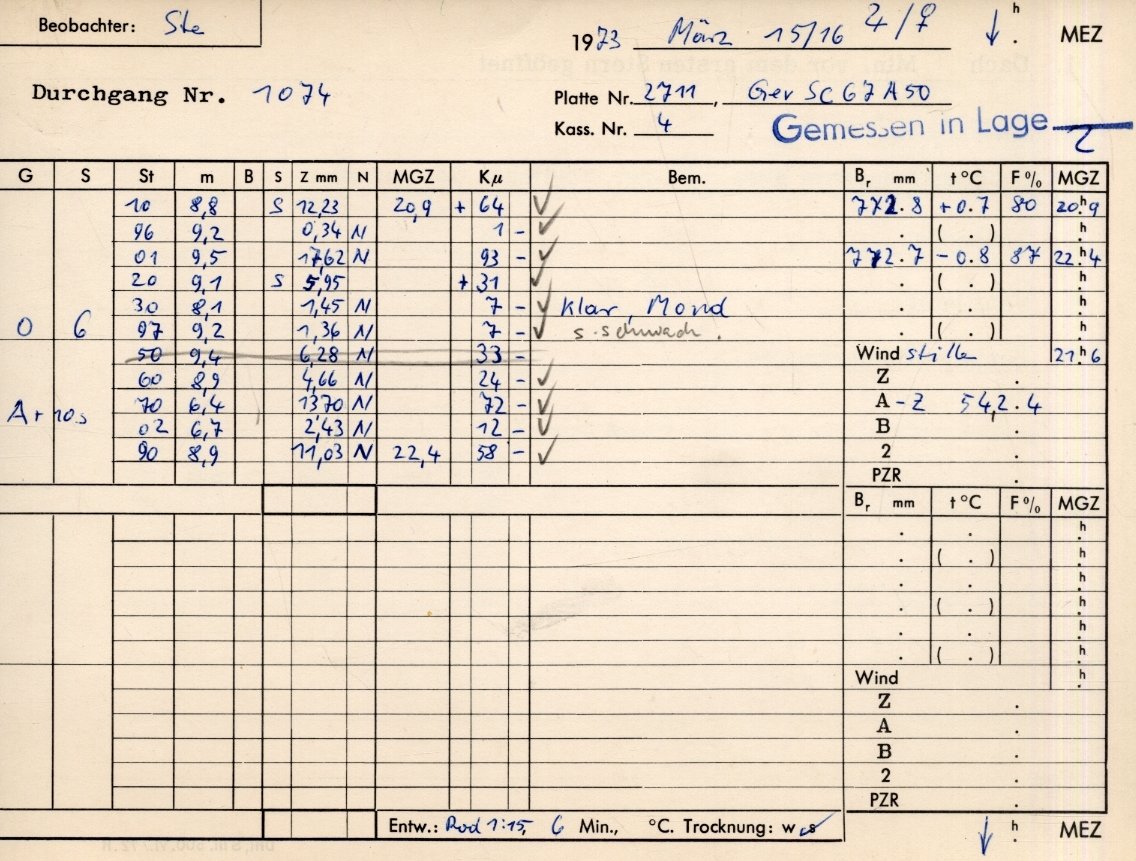 Beobachter: Ste
1973 März 15/16 ♃/♀ ↓ h . MEZ
Durchgang Nr. 1074
Platte Nr. 2711, Gev Sc67A50
Kass. Nr. 4
Gemessen in Lage 2
G S St m B S Z mm N MGZ Kμ Bem. Br mm t °C F% MGZ
10 8,8 S 12,23 20,9 + 64 ✓ 772.8 +0.7 80 20h9
96 9,2 0,34 N 1 - ✓ . ( . ) h
01 9,5 17,62 N 93 - ✓ 772.7 -0.8 87 22h4
20 9,1 S 5,95 + 31 ✓ . ( . ) h
30 8,1 1,45 N 7 - ✓ Klar, Mond . . h
0 6 97 9,2 1,36 N 7 - ✓ s. schwach . . ( . ) h
50 9,4 6,28 N 33 - Wind stille 21h6
60 8,9 4,66 N 24 - ✓ Z .
A + 10s 70 6,4 13,70 N 72 - ✓ A - Z 54,2.4
02 6,7 2,43 N 12 - ✓ B .
90 8,9 11,03 N 22,4 58 - ✓ 2 .
PZR .
Br mm t °C F% MGZ
. . h
. ( . ) h
. . h
. ( . ) h
. . h
. ( . ) h
Wind h
Z .
A .
B .
2 .
PZR .
Entw.: Rod 1:15, 6 Min., °C. Trocknung: w s
↓ h . MEZ